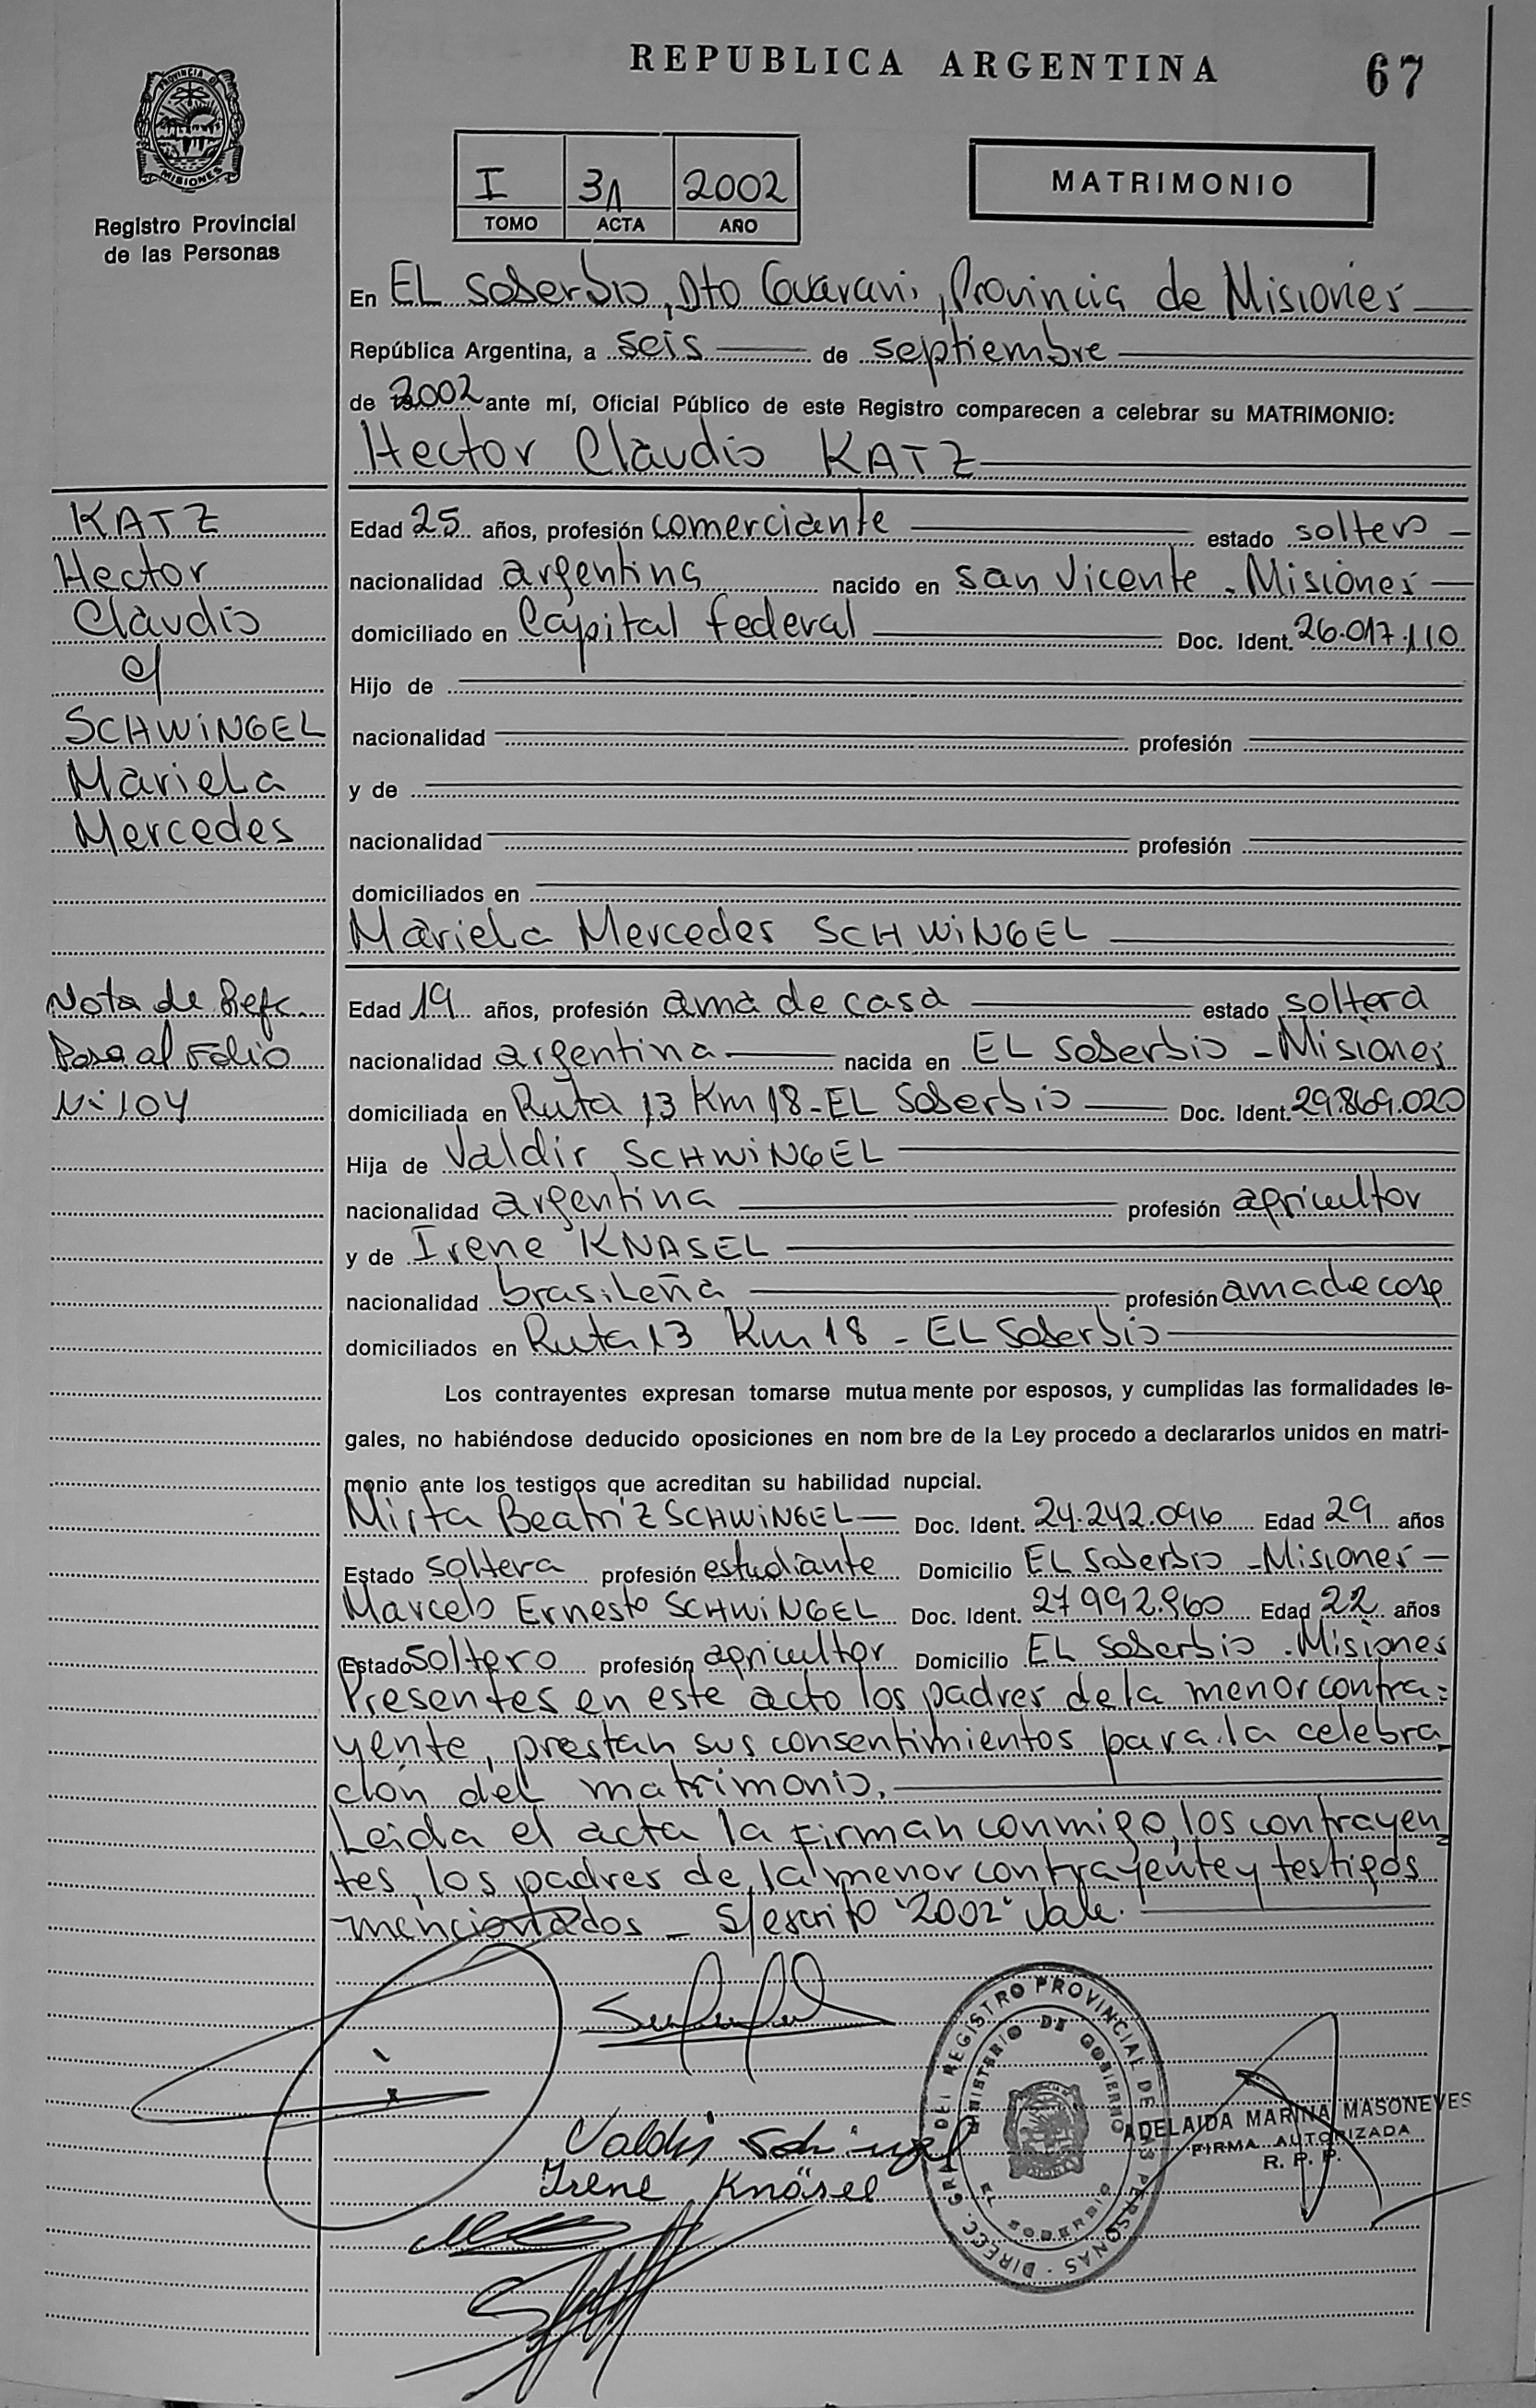 REPUBLICA ARGENTINA
67
PROVINCIA DE
MISIONES
Registro Provincial
de las Personas
I 31 2002
TOMO ACTA AÑO
MATRIMONIO
En EL Soberbio, Dto Guarani, Provincia de Misiones
República Argentina, a seis de septiembre
de 2002 ante mí, Oficial Público de este Registro comparecen a celebrar su MATRIMONIO:
Hector Claudio KATZ
KATZ
Hector
Claudio
c/
SCHWiNGEL
Mariela
Mercedes
Edad 25 años, profesión comerciante estado soltero
nacionalidad argentina nacido en San Vicente - Misiones
domiciliado en Capital Federal Doc. Ident. 26.017.110
Hijo de
nacionalidad profesión
y de
nacionalidad profesión
domiciliados en
Mariela Mercedes SCHWiNGEL
Nota de Refc.
Pasa al Folio
Nº 104
Edad 19 años, profesión ama de casa estado soltera
nacionalidad argentina nacida en EL Soberbio - Misiones
domiciliada en Ruta 13 Km 18 - EL Soberbio Doc. Ident. 29.869.020
Hija de Valdir SCHWiNGEL
nacionalidad argentina profesión agricultor
y de Irene KNASEL
nacionalidad brasileña profesión ama de casa
domiciliados en Ruta 13 Km 18 - EL Soberbio
Los contrayentes expresan tomarse mutua mente por esposos, y cumplidas las formalidades le-
gales, no habiéndose deducido oposiciones en nom bre de la Ley procedo a declararlos unidos en matri-
monio ante los testigos que acreditan su habilidad nupcial.
Mirta Beatriz SCHWiNGEL Doc. Ident. 24.242.096 Edad 29 años
Estado soltera profesión estudiante Domicilio EL Soberbio - Misiones
Marcelo Ernesto SCHWiNGEL Doc. Ident. 27.992.960 Edad 22 años
Estado soltero profesión agricultor Domicilio EL Soberbio - Misiones
Presentes en este acto los padres de la menor contra=
yente, prestan sus consentimientos para la celebra
ción del matrimonio.
Leida el acta la firman conmigo, los contrayen
tes, los padres de la menor contrayente y testigos
mencionados - S/escrito "2002" Vale.
Valdir Schwingel
Irene Knäsel
DIRECC. GRAL DEL REGISTRO PROVINCIAL DE LAS PERSONAS
MINISTERIO DE GOBIERNO
EL SOBERBIO
ADELAIDA MARINA MASONEVES
FIRMA AUTORIZADA
R. P. P.